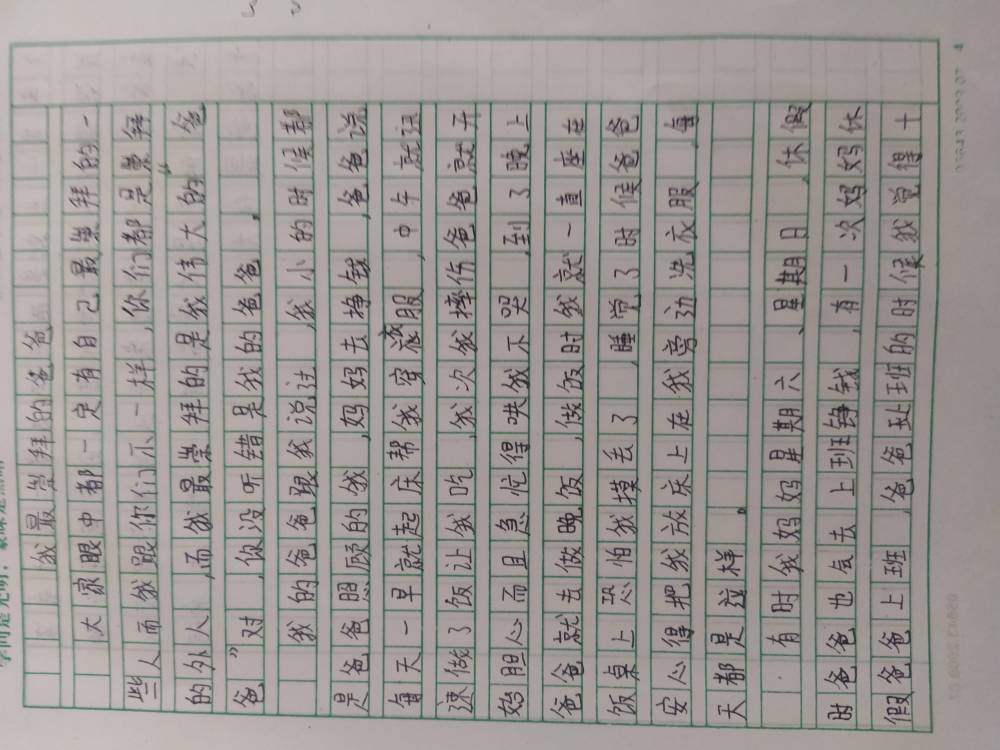 我最崇拜的爸爸
大家眼中都一定有自己最崇拜的一
些人而我跟你们不一样，你们都是崇拜
的外人，而我最崇拜的是我伟大的“爸
爸”对，你没听错是我的爸爸。
我的爸爸跟我说过，我小的时候都
是爸爸照顾的我，妈妈去挣钱，爸爸说
每天一早就起床帮我穿衣服，中午就迅
速做了饭让我吃，我次我摔伤爸爸就开
始胆心而且急忙得哄我不哭，到了晚上
爸爸就去做晚饭，做饭时我就一直座在
饭桌上恐怕我摸丢了，睡觉了时候爸爸
安心得把我放床上在我旁边洗衣服，每
天都是这样。
有时我妈妈星期六、星期日，休假
时爸爸也会去上班铮钱，有一次妈妈休
假爸爸上班，爸爸玭班的时候我觉得十